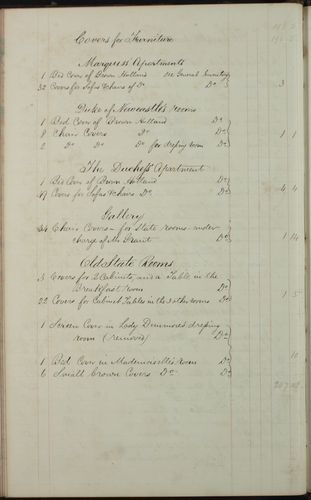 Covers for Furniture
Marquess Apartments
1 Bed Cover of Brown Holland See General Inventory
32 Covers for Sofas & chairs of Do Do 3
Duke of Newcastle's rooms
1 Bed Cover of Brown Holland Do
8 Chair Covers Do Do 1 1
2 Do Do Do for dressing room Do
The Duchess Apartment
1 Bed Cover of Brown Holland Do
Covers for Sofas & chairs Do Do 4 4
Gallery
34 Chair Covers - for State rooms - under
charge of Mr Do 1 14
Old State Rooms
3 Covers for 2 Cabinets, and a Table in the
Breakfast room Do
22 Covers for Cabinet Tables in the 3 other rooms Do 1 5
1 Screen Cover in Lady Dunmore's dressing
room (removed) Do
1 Bed Cover in room Do 10
6 Small brown Covers Do Do